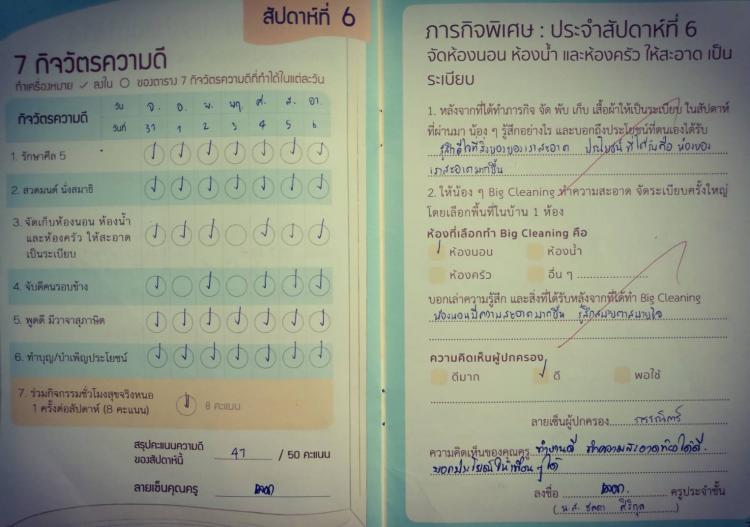 สัปดาห์ที่ 6
7 กิจวัตรความดี
ทำเครื่องหมาย ✓ ลงใน ○ ของตาราง 7 กิจวัตรความดีที่ทำได้ในแต่ละวัน
กิจวัตรความดี วัน จ. อ. พ. พฤ. ศ. ส. อา.
วันที่ 31 1 2 3 4 5 6
1. รักษาศีล 5
2. สวดมนต์ นั่งสมาธิ
3. จัดเก็บห้องนอน ห้องน้ำ
และห้องครัว ให้สะอาด
เป็นระเบียบ
4. จับดีคนรอบข้าง
5. พูดดี มีวาจาสุภาษิต
6. ทำบุญ/บำเพ็ญประโยชน์
7. ร่วมกิจกรรมชั่วโมงสุขจริงหนอ
1 ครั้งต่อสัปดาห์ (8 คะแนน) 8 คะแนน
สรุปคะแนนความดี
ของสัปดาห์นี้ 47 / 50 คะแนน
ลายเซ็นคุณครู
ภารกิจพิเศษ : ประจำสัปดาห์ที่ 6
จัดห้องนอน ห้องน้ำ และห้องครัว ให้สะอาด เป็น
ระเบียบ
1. หลังจากที่ได้ทำภารกิจ จัด พับ เก็บ เสื้อผ้าให้เป็นระเบียบ ในสัปดาห์
ที่ผ่านมา น้อง ๆ รู้สึกอย่างไร และบอกถึงประโยชน์ที่ตนเองได้รับ
รู้สึกดีใจที่ห้องของเราสะอาด ประโยชน์ที่ได้รับคือ ห้องของ
เราสะอาดมากขึ้น
2. ให้น้อง ๆ Big Cleaning ทำความสะอาด จัดระเบียบครั้งใหญ่
โดยเลือกพื้นที่ในบ้าน 1 ห้อง
ห้องที่เลือกทำ Big Cleaning คือ
ห้องนอน ห้องน้ำ
ห้องครัว อื่น ๆ
บอกเล่าความรู้สึก และสิ่งที่ได้รับหลังจากที่ได้ทำ Big Cleaning
ห้องนอนมีความสะอาดมากขึ้น รู้สึกสบายตาสบายใจ
ความคิดเห็นผู้ปกครอง
ดีมาก ดี พอใช้
ลายเซ็นผู้ปกครอง
ความคิดเห็นของคุณครู ทำงานดี ทำความสะอาดห้องได้ดี
บอกประโยชน์ให้เพื่อนๆได้
ลงชื่อ ครูประจำชั้น